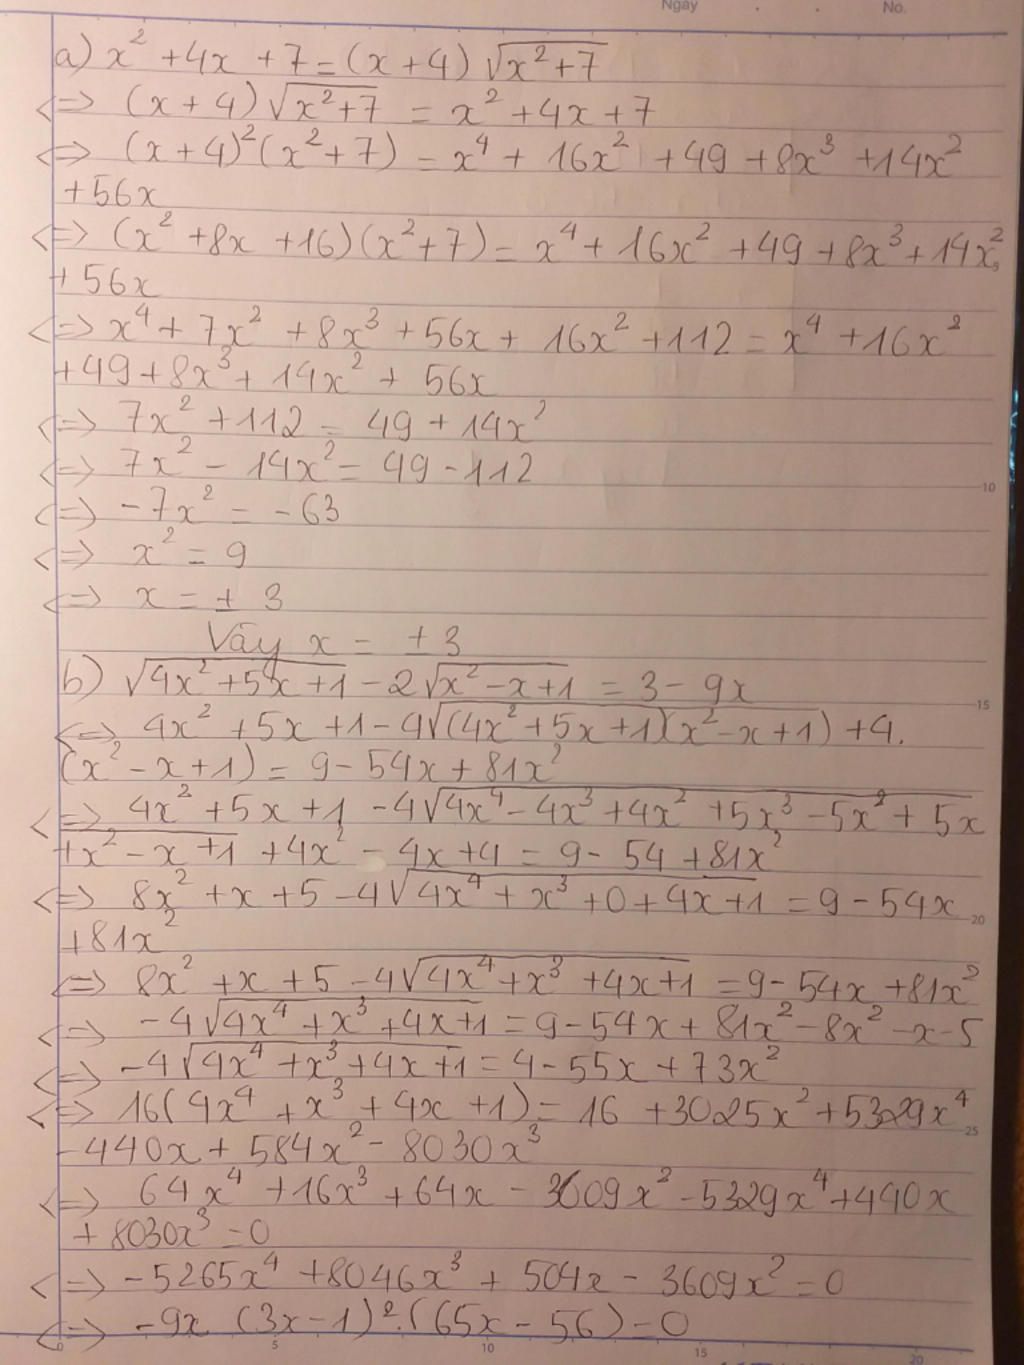 Ngày . . No.
a) x² + 4x + 7 = (x + 4) √(x² + 7)
<=> (x + 4) √(x² + 7) = x² + 4x + 7
<=> (x + 4)² (x² + 7) = x⁴ + 16x² + 49 + 8x³ + 14x²
+ 56x
<=> (x² + 8x + 16)(x² + 7) = x⁴ + 16x² + 49 + 8x³ + 14x²
+ 56x
<=> x⁴ + 7x² + 8x³ + 56x + 16x² + 112 = x⁴ + 16x²
+ 49 + 8x³ + 14x² + 56x
<=> 7x² + 112 = 49 + 14x²
<=> 7x² - 14x² = 49 - 112
10
<=> -7x² = -63
<=> x² = 9
<=> x = ± 3
Vậy x = ± 3
b) √(4x² + 5x + 1) - 2√(x² - x + 1) = 3 - 9x
15
<=> 4x² + 5x + 1 - 4√((4x² + 5x + 1)(x² - x + 1)) + 4.
(x² - x + 1) = 9 - 54x + 81x²
<=> 4x² + 5x + 1 - 4√(4x⁴ - 4x³ + 4x² + 5x³ - 5x² + 5x
+ x² - x + 1) + 4x² - 4x + 4 = 9 - 54 + 81x²
<=> 8x² + x + 5 - 4√(4x⁴ + x³ + 0 + 4x + 1) = 9 - 54x
20
+ 81x²
<=> 8x² + x + 5 - 4√(4x⁴ + x³ + 4x + 1) = 9 - 54x + 81x²
<=> -4√(4x⁴ + x³ + 4x + 1) = 9 - 54x + 81x² - 8x² - x - 5
<=> -4√(4x⁴ + x³ + 4x + 1) = 4 - 55x + 73x²
<=> 16(4x⁴ + x³ + 4x + 1) = 16 + 3025x² + 5329x⁴
25
- 440x + 584x² - 8030x³
<=> 64x⁴ + 16x³ + 64x - 3609x² - 5329x⁴ + 440x
+ 8030x³ = 0
<=> -5265x⁴ + 8046x³ + 504x - 3609x² = 0
<=> -9x (3x - 1)².(65x - 56) = 0
0 5 10 15 20